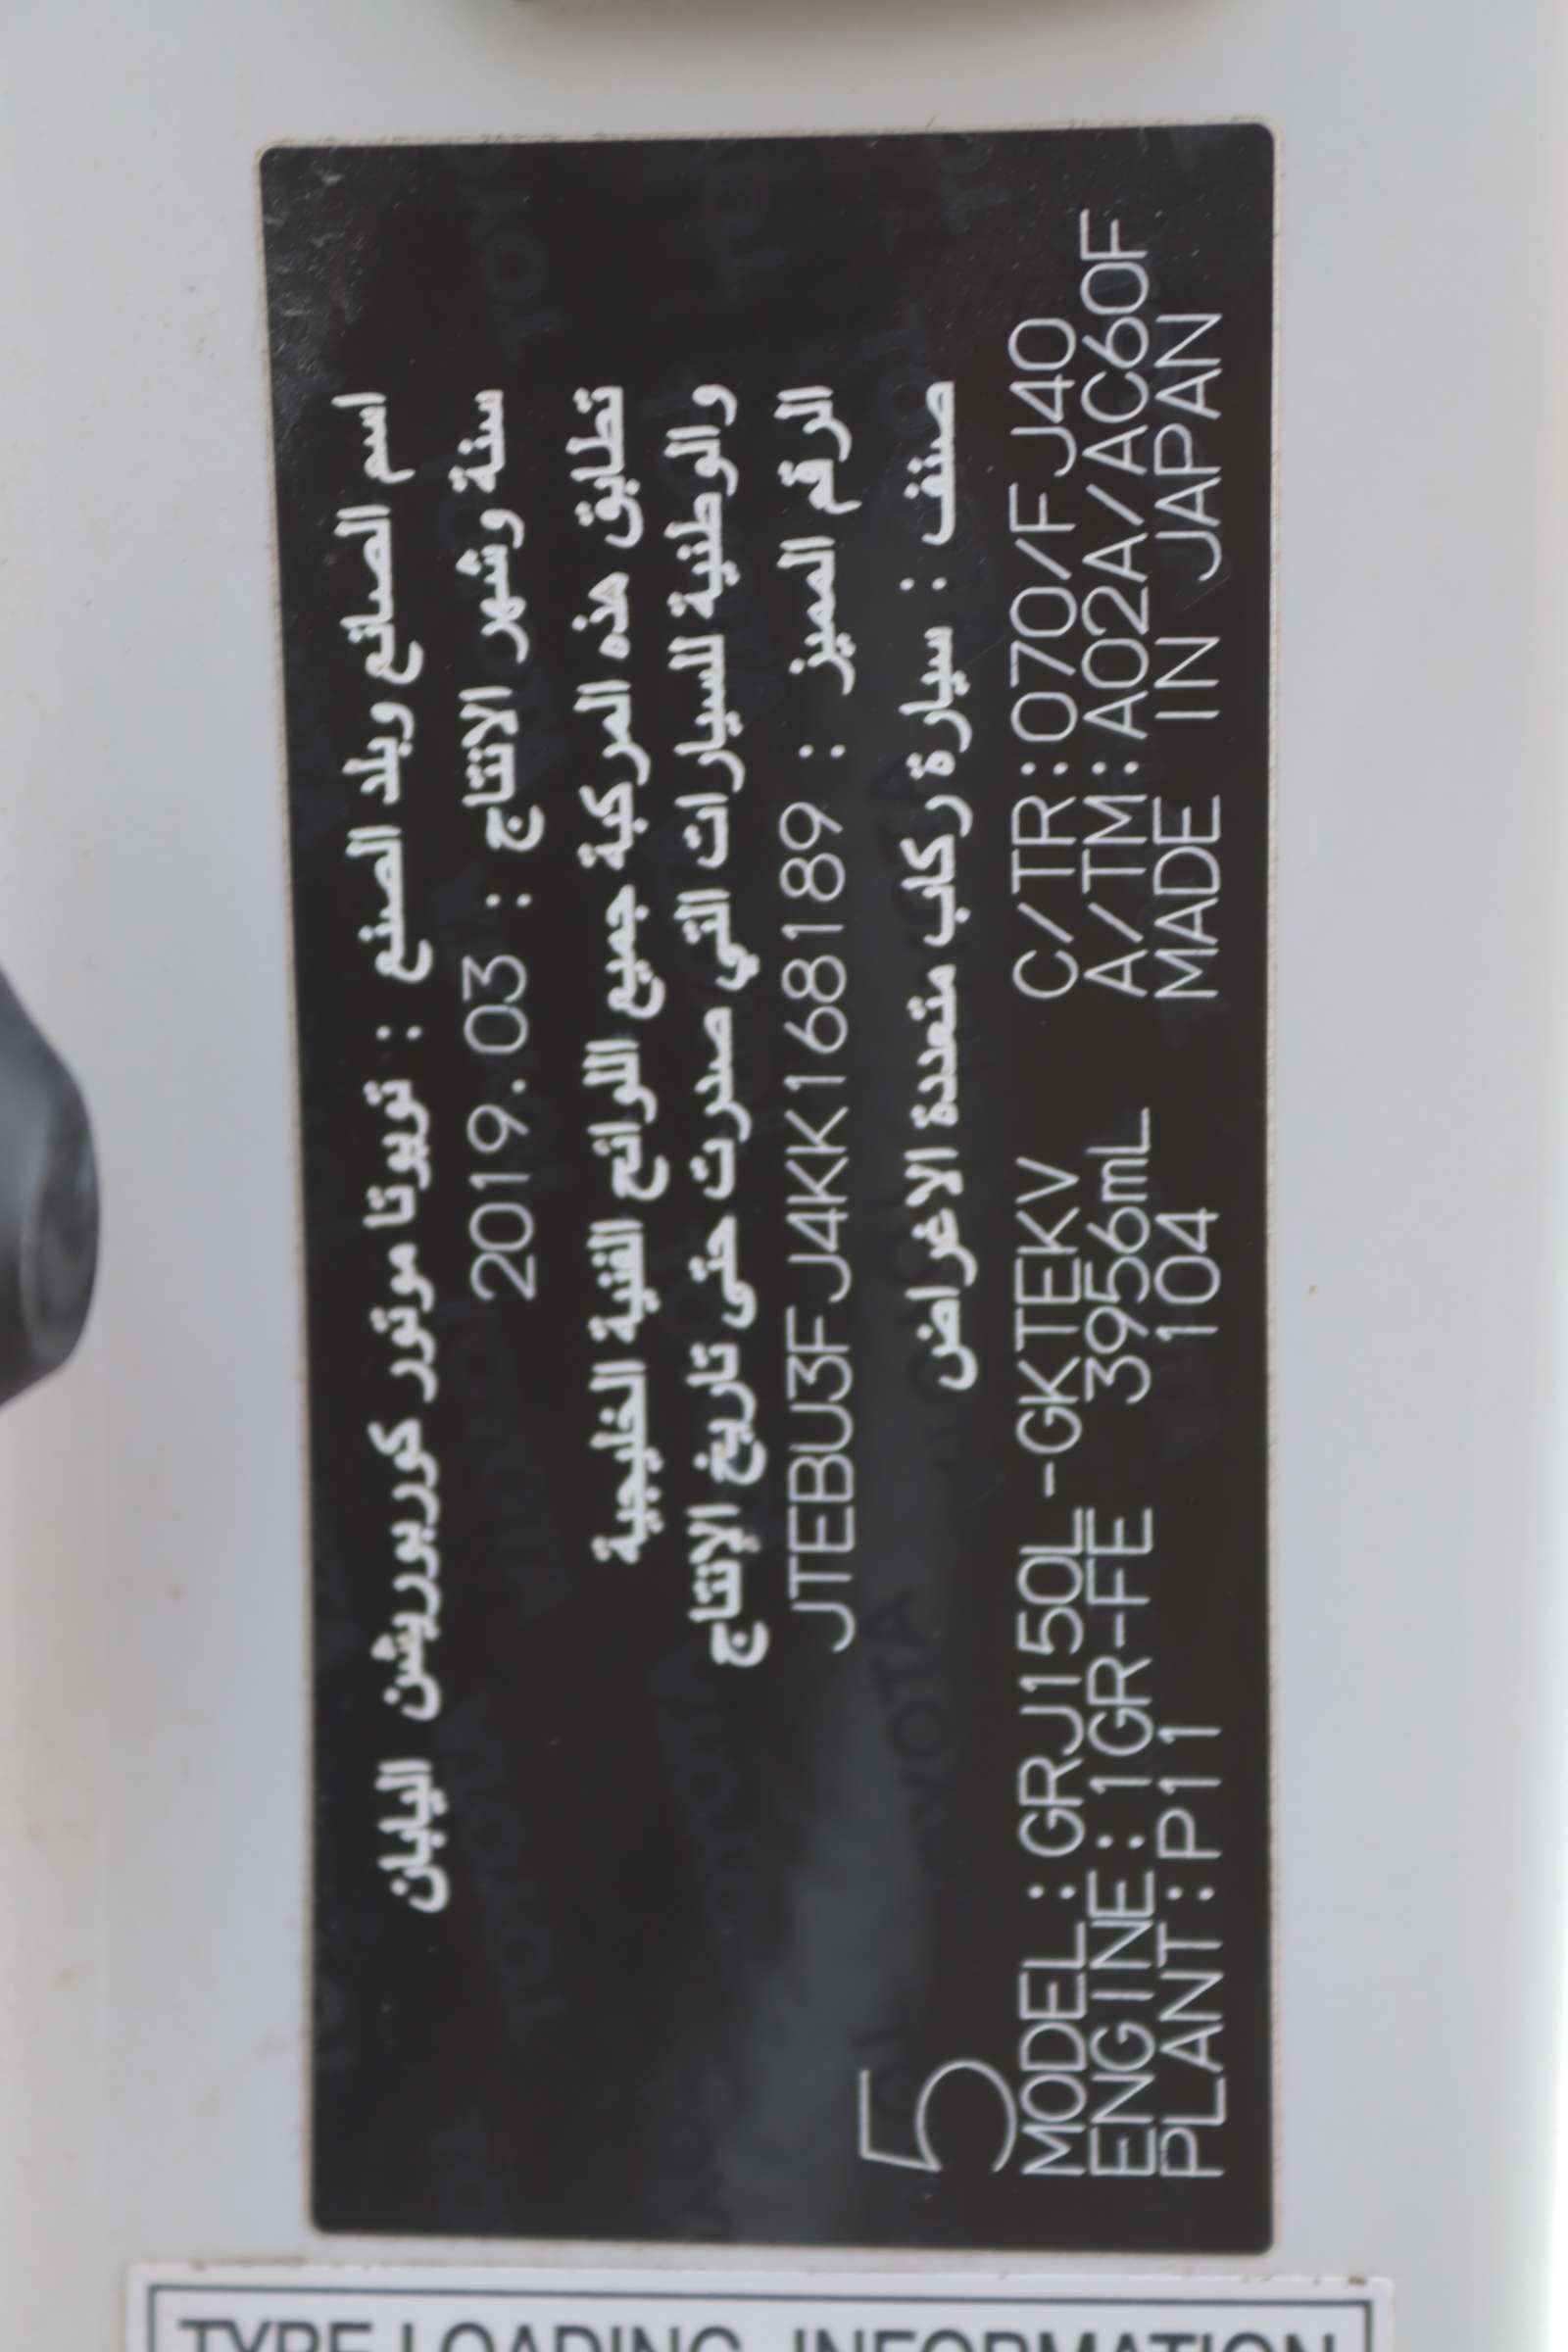 اسم الصانع وبلد الصنع : تويوتا موتور كوربوريشن اليابان
سنة وشهر الانتاج : 2019.03
تطابق هذه المركبة جميع اللوائح الفنية الخليجية
والوطنية للسيارات التي صدرت حتى تاريخ الإنتاج
الرقم المميز : JTEBU3FJ4KK168189
صنف : سيارة ركاب متعددة الاغراض
5
MODEL:GRJ150L-GKTEKV C/TR:070/FJ40
ENGINE:1GR-FE 3956mL A/TM:A02A/AC60F
PLANT:P11 104 MADE IN JAPAN
TYRE LOADING INFORMATION